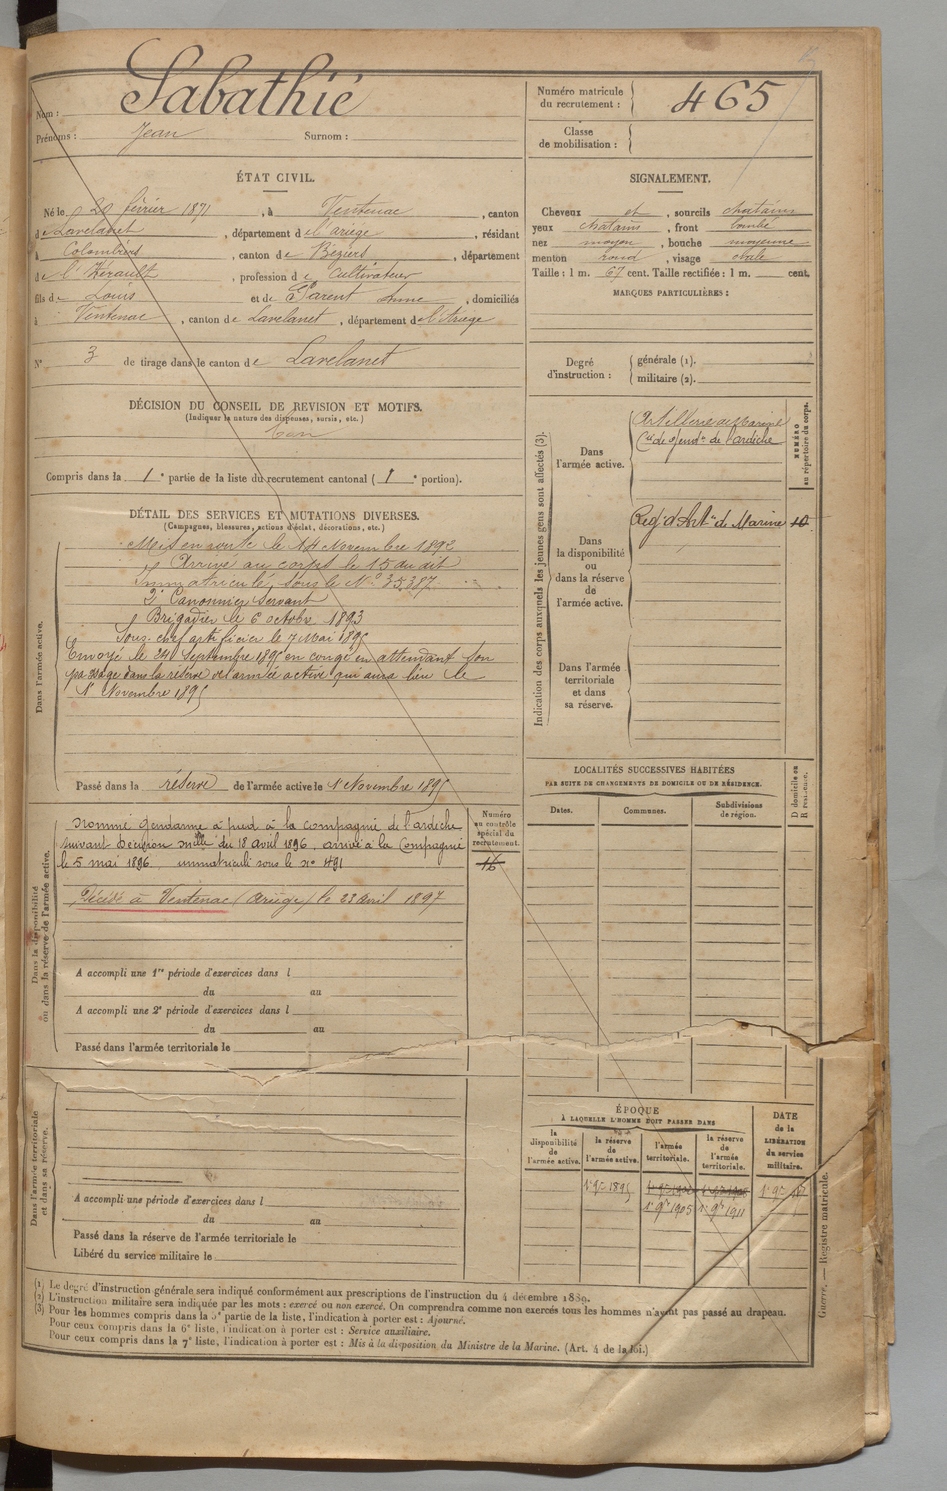 Nom : Sabathié
Prénoms : Jean Surnom :
Numéro matricule du recrutement : 465
Classe de mobilisation :
ÉTAT CIVIL.
Né le 20 février 1871, à Ventenac, canton
de Lavelanet, département de l'ariège, résidant
à Colombiers, canton de Béziers, département
de l'Hérault, profession de Cultivateur
fils de Louis et de Parent Anne, domiciliés
à Ventenac, canton de Lavelanet, département de l'Ariège
N° 3 de tirage dans le canton de Lavelanet
SIGNALEMENT.
Cheveux et, sourcils chatains
yeux chatains, front
nez moyen, bouche moyenne
menton rond, visage ovale
Taille : 1 m. 67 cent. Taille rectifiée : 1 m. cent.
MARQUES PARTICULIÈRES :
Degré d'instruction : générale (1).
militaire (2).
DÉCISION DU CONSEIL DE REVISION ET MOTIFS.
(Indiquer la nature des dispenses, sursis, etc.)
Compris dans la 1e partie de la liste du recrutement cantonal (1e portion).
DÉTAIL DES SERVICES ET MUTATIONS DIVERSES.
(Campagnes, blessures, actions d'éclat, décorations, etc.)
Dans l'armée active.
Mis en route le 14 Novembre 1892
Arrivé au corps le 15 du dit
Immatriculé sous le N° 35.387
2e Canonnier Servant
Brigadier le 6 octobre 1893
Sous-chef artificier le 7 Mai 1895
Envoyé le 24 Septembre 1895 en congé en attendant son
passage dans la réserve de l'armée active qui aura lieu le
1r Novembre 1895
Passé dans la réserve de l'armée active le 1r Novembre 1895
Indication des corps auxquels les jeunes gens sont affectés (3).
NUMÉRO au répertoire du corps.
Dans l'armée active.
Artillerie de Marine
Cie de Gendie de l'ardèche
Dans la disponibilité ou dans la réserve de l'armée active.
Régt d'Artie de Marine 10
Dans l'armée territoriale et dans sa réserve.
Dans la disponibilité ou dans la réserve de l'armée active.
Nommé gendarme à pied à la compagnie de l'ardèche
suivant décision mlle du 18 avril 1896. arrivé à la Compagnie
le 5 mai 1896. immatriculé sous le no 491
Décédé à Ventenac (Ariège) le 23 avril 1897
Numéro au contrôle spécial du recrutement.
16
A accompli une 1re période d'exercices dans l
du au
A accompli une 2e période d'exercices dans l
du au
Passé dans l'armée territoriale le
LOCALITÉS SUCCESSIVES HABITÉES
PAR SUITE DE CHANGEMENTS DE DOMICILE OU DE RÉSIDENCE.
Dates. Communes. Subdivisions de région.
D domicile ou R résidence.
Dans l'armée territoriale et dans sa réserve.
A accompli une période d'exercices dans l
du au
Passé dans la réserve de l'armée territoriale le
Libéré du service militaire le
ÉPOQUE
À LAQUELLE L'HOMME DOIT PASSER DANS
la disponibilité de l'armée active.
la réserve de l'armée active.
l'armée territoriale.
la réserve de l'armée territoriale.
DATE de la LIBÉRATION du service militaire.
1r 9bre 1895
1r 9bre 1905 1r 9bre 1911
(1) Le degré d'instruction générale sera indiqué conformément aux prescriptions de l'instruction du 4 décembre 1889.
(2) L'instruction militaire sera indiquée par les mots : exercé ou non exercé. On comprendra comme non exercés tous les hommes n'ayant pas passé au drapeau.
(3) Pour les hommes compris dans la 5e partie de la liste, l'indication à porter est : Ajourné.
Pour ceux compris dans la 6e liste, l'indication à porter est : Service auxiliaire.
Pour ceux compris dans la 7e liste, l'indication à porter est : Mis à la disposition du Ministre de la Marine. (Art. 4 de la loi.)
Guerre. — Registre matricule.